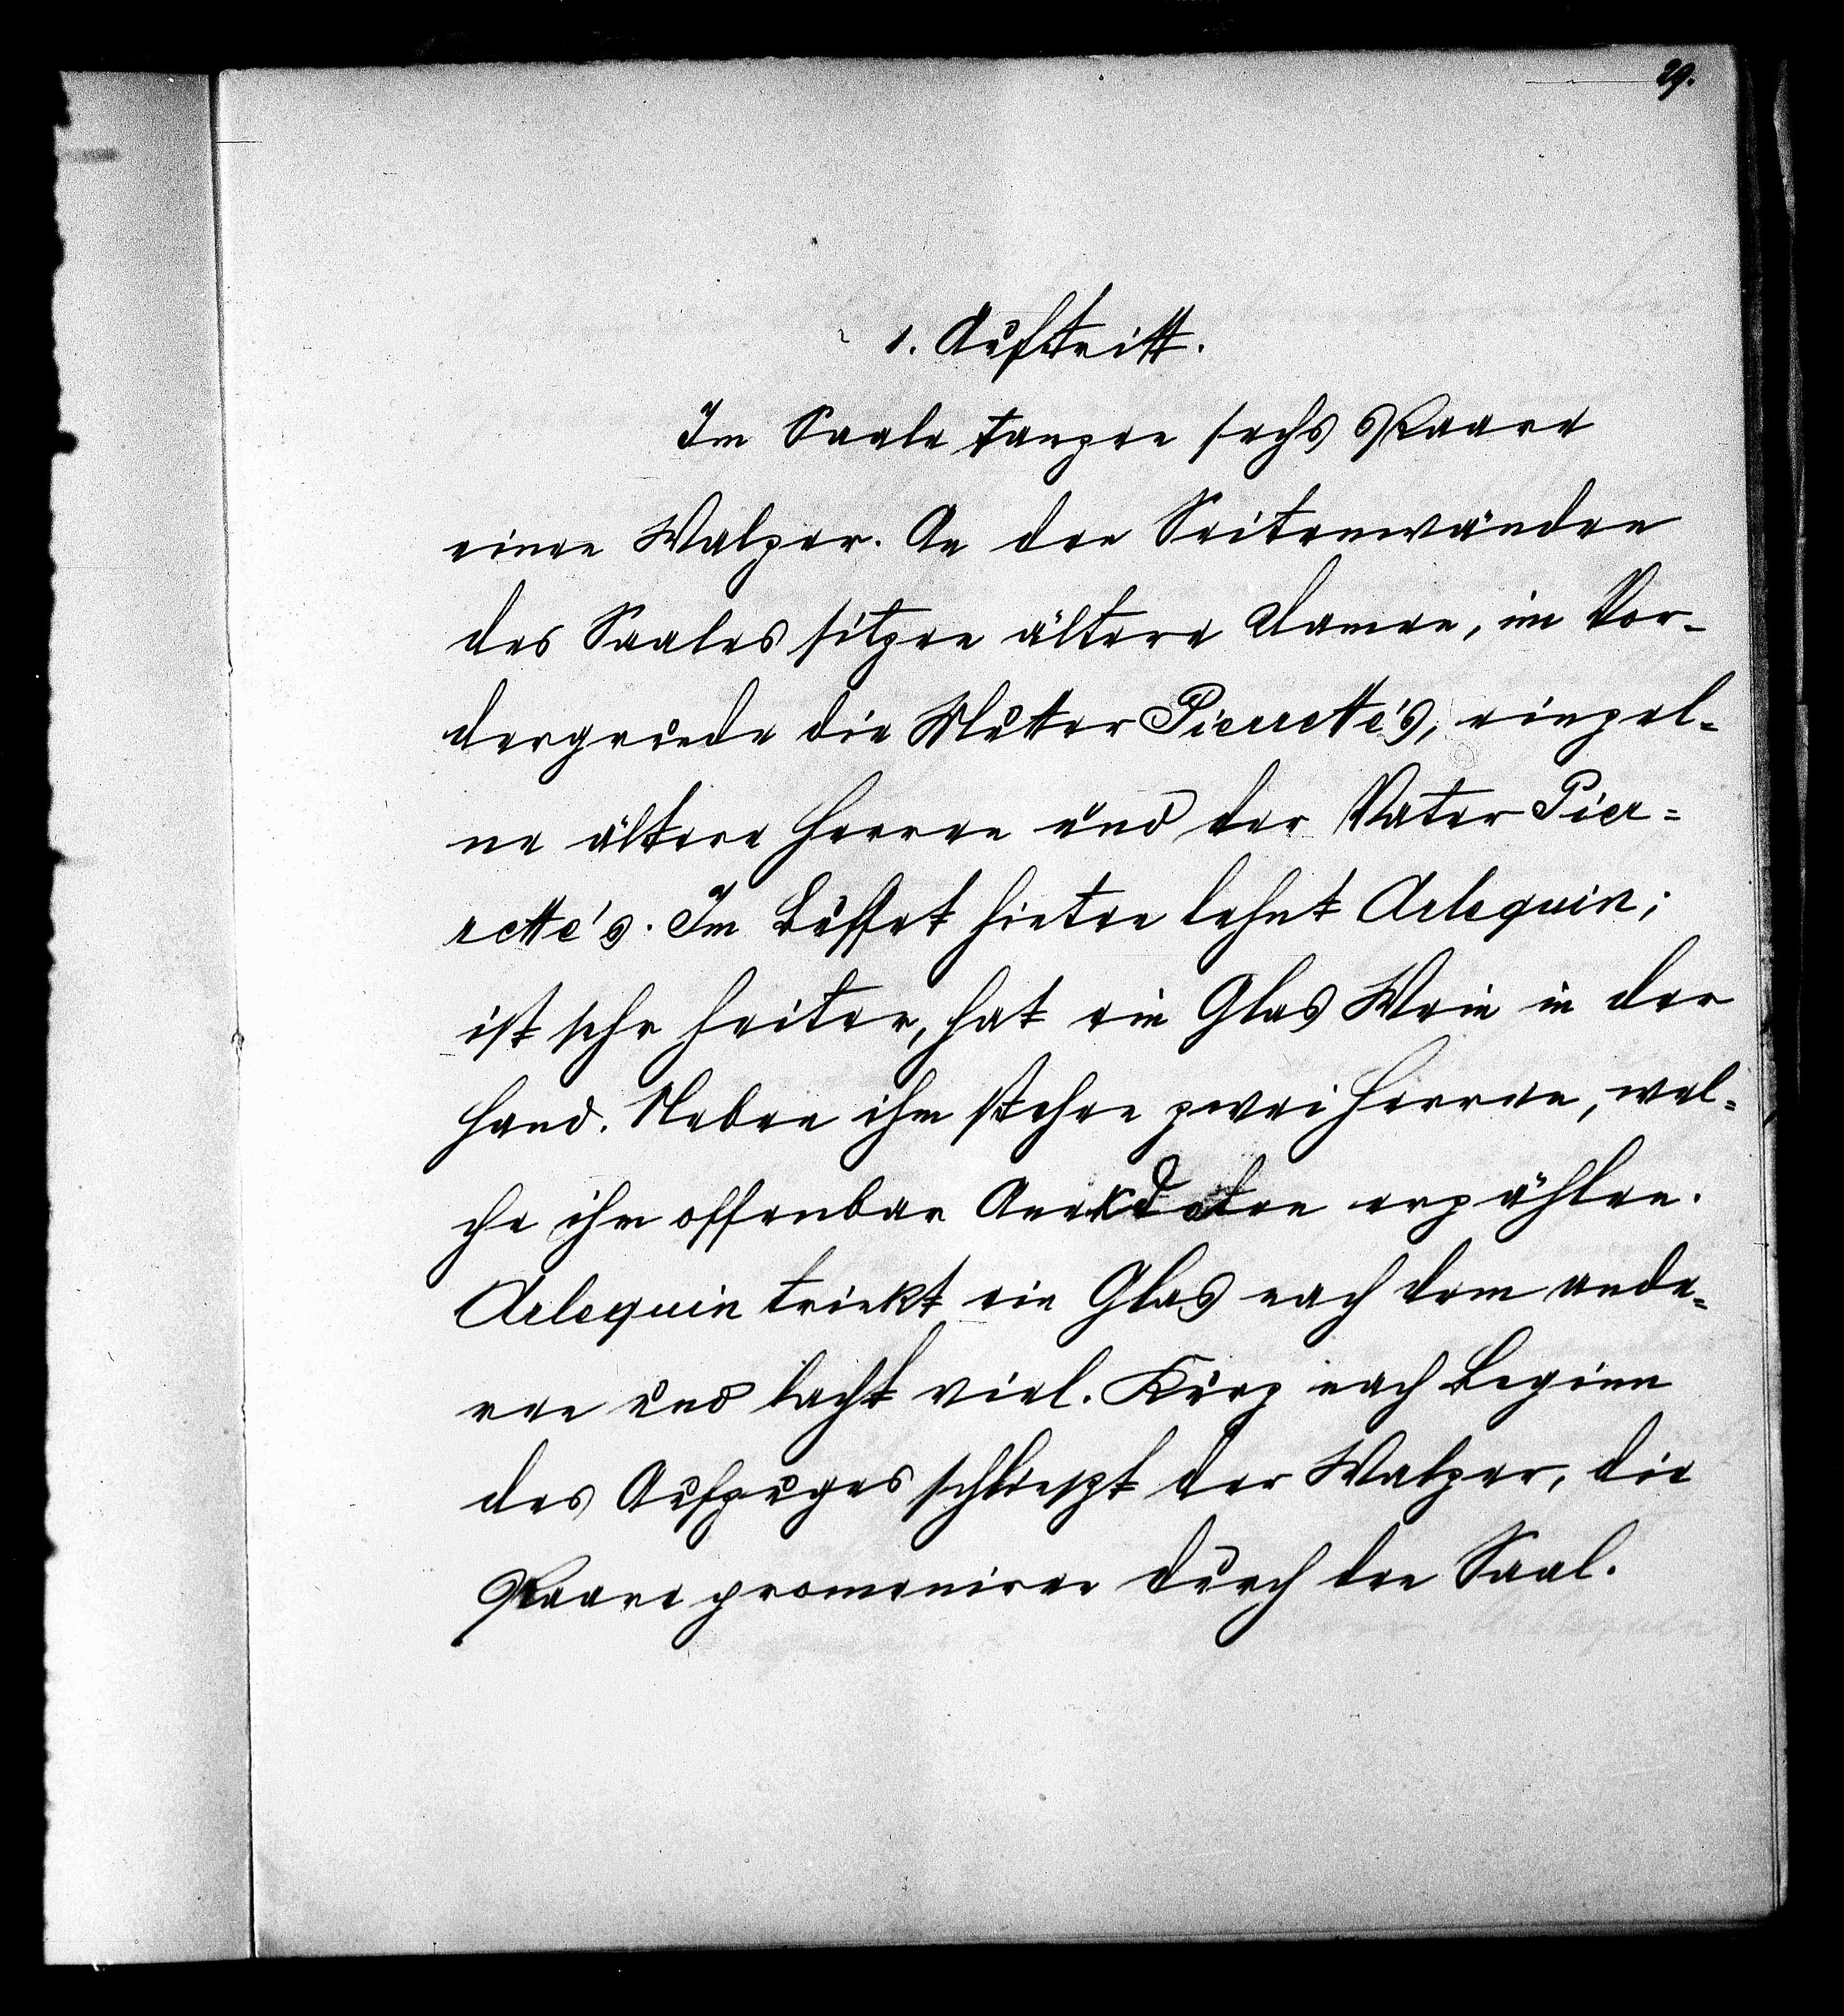 29.
1. Auftritt.
Im Saale tanzen sechs Paare
einen Walzer. An den Seitenwänden
des Saales sitzen ältere Damen, im Vor-
dergrunde die Mutter Pierrette's, einzel-
ne ältere Herren und der Vater Pier-
rette's. Im Buffet hinten lehnt Arlequin;
ist sehr heiter, hat ein Glas Wein in der
Hand. Neben ihm stehen zwei Herren, wel-
che ihm offenbar Anekdoten erzählen.
Arlequin trinkt ein Glas nach dem ande-
ren und lacht viel. Kurz nach Beginn
des Aufzuges schließt der Walzer, die
Paare promeniren durch den Saal.